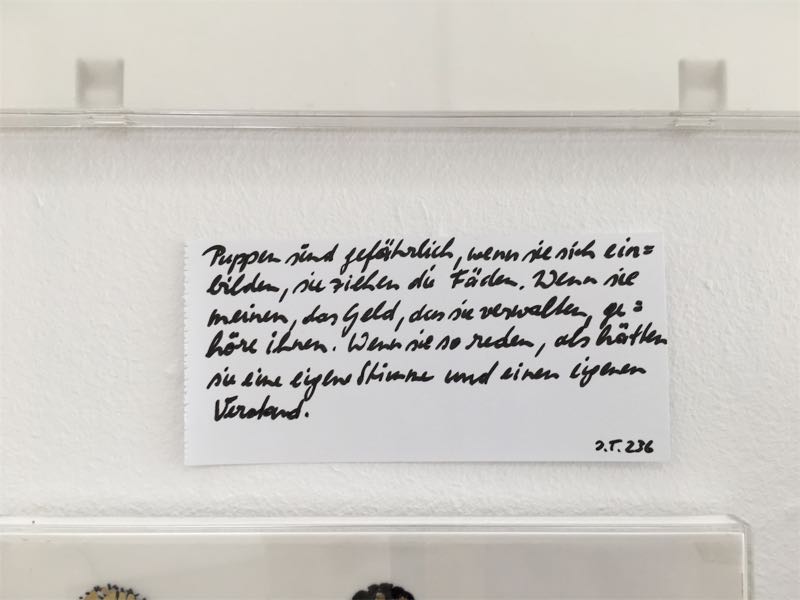 Puppen sind gefährlich, wenn sie sich ein=
bilden, sie ziehen die Fäden. Wenn sie
meinen, das Geld, das sie verwalten, ge=
höre ihnen. Wenn sie so reden, als hätten
sie eine eigene Stimme und einen eigenen
Verstand.
J.T. 236